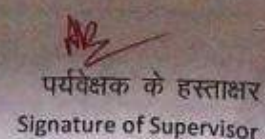 पर्यवेक्षक के हस्ताक्षर
Signature of Supervisor